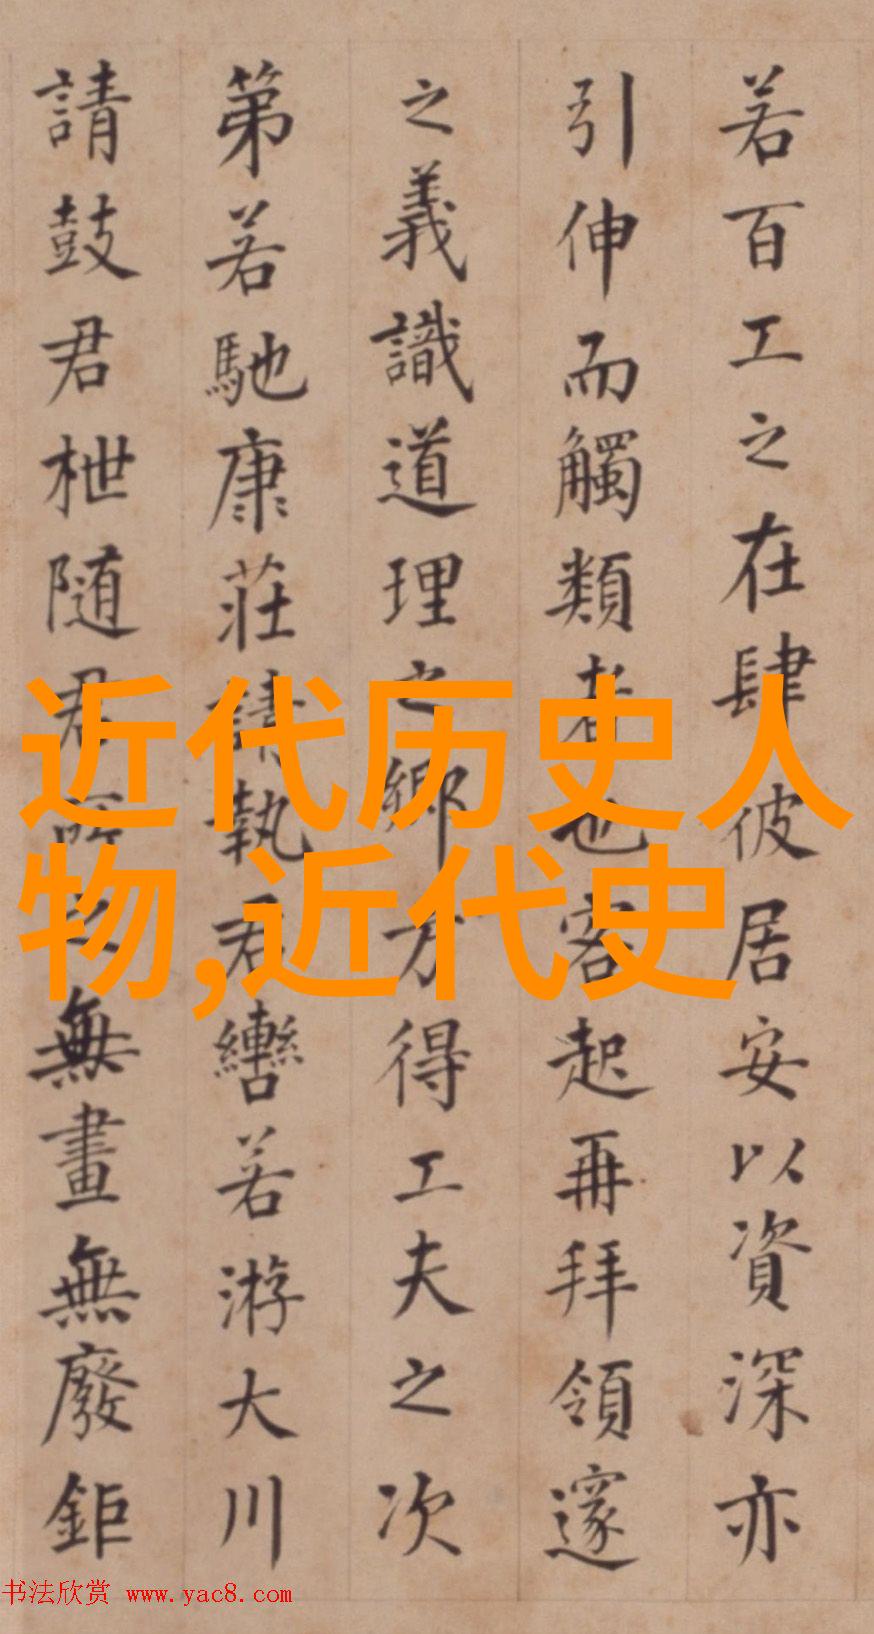 若百工之在肆彼居安以資深亦
引伸而觸類者也客起再拜領邃
之義識道理之鄉方得工夫之次
第若馳康莊請執君轡若游大川
請鼓君枻随君所之無畫無廢鉅
近代历史人
物,近代史
书法欣赏 www.yac8.com